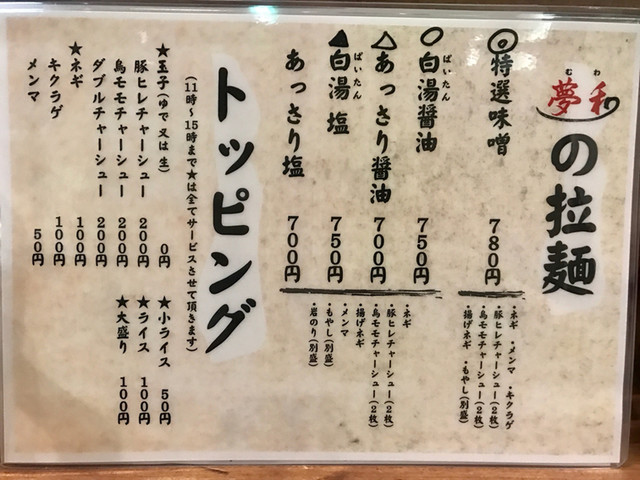 夢和の拉麺
むわ
◎特選味噌 780円
・ネギ ・メンマ ・キクラゲ
・豚ヒレチャーシュー(2枚)
・鳥モモチャーシュー(2枚)
・揚げネギ ・もやし(別盛)
○白湯醤油 750円
ぱいたん
△あっさり醤油 700円
▲白湯塩 750円
ぱいたん
あっさり塩 700円
・ネギ
・豚ヒレチャーシュー(2枚)
・鳥モモチャーシュー(2枚)
・揚げネギ
・メンマ
・もやし(別盛)
・岩のり(別盛)
トッピング
(11時〜15時まで★は全てサービスさせて頂きます)
★玉子(ゆで又は生) 0円
豚ヒレチャーシュー 200円
鳥モモチャーシュー 200円
ダブルチャーシュー 200円
★ネギ 100円
キクラゲ 100円
メンマ 50円
★小ライス 50円
★ライス 100円
★大盛り 100円